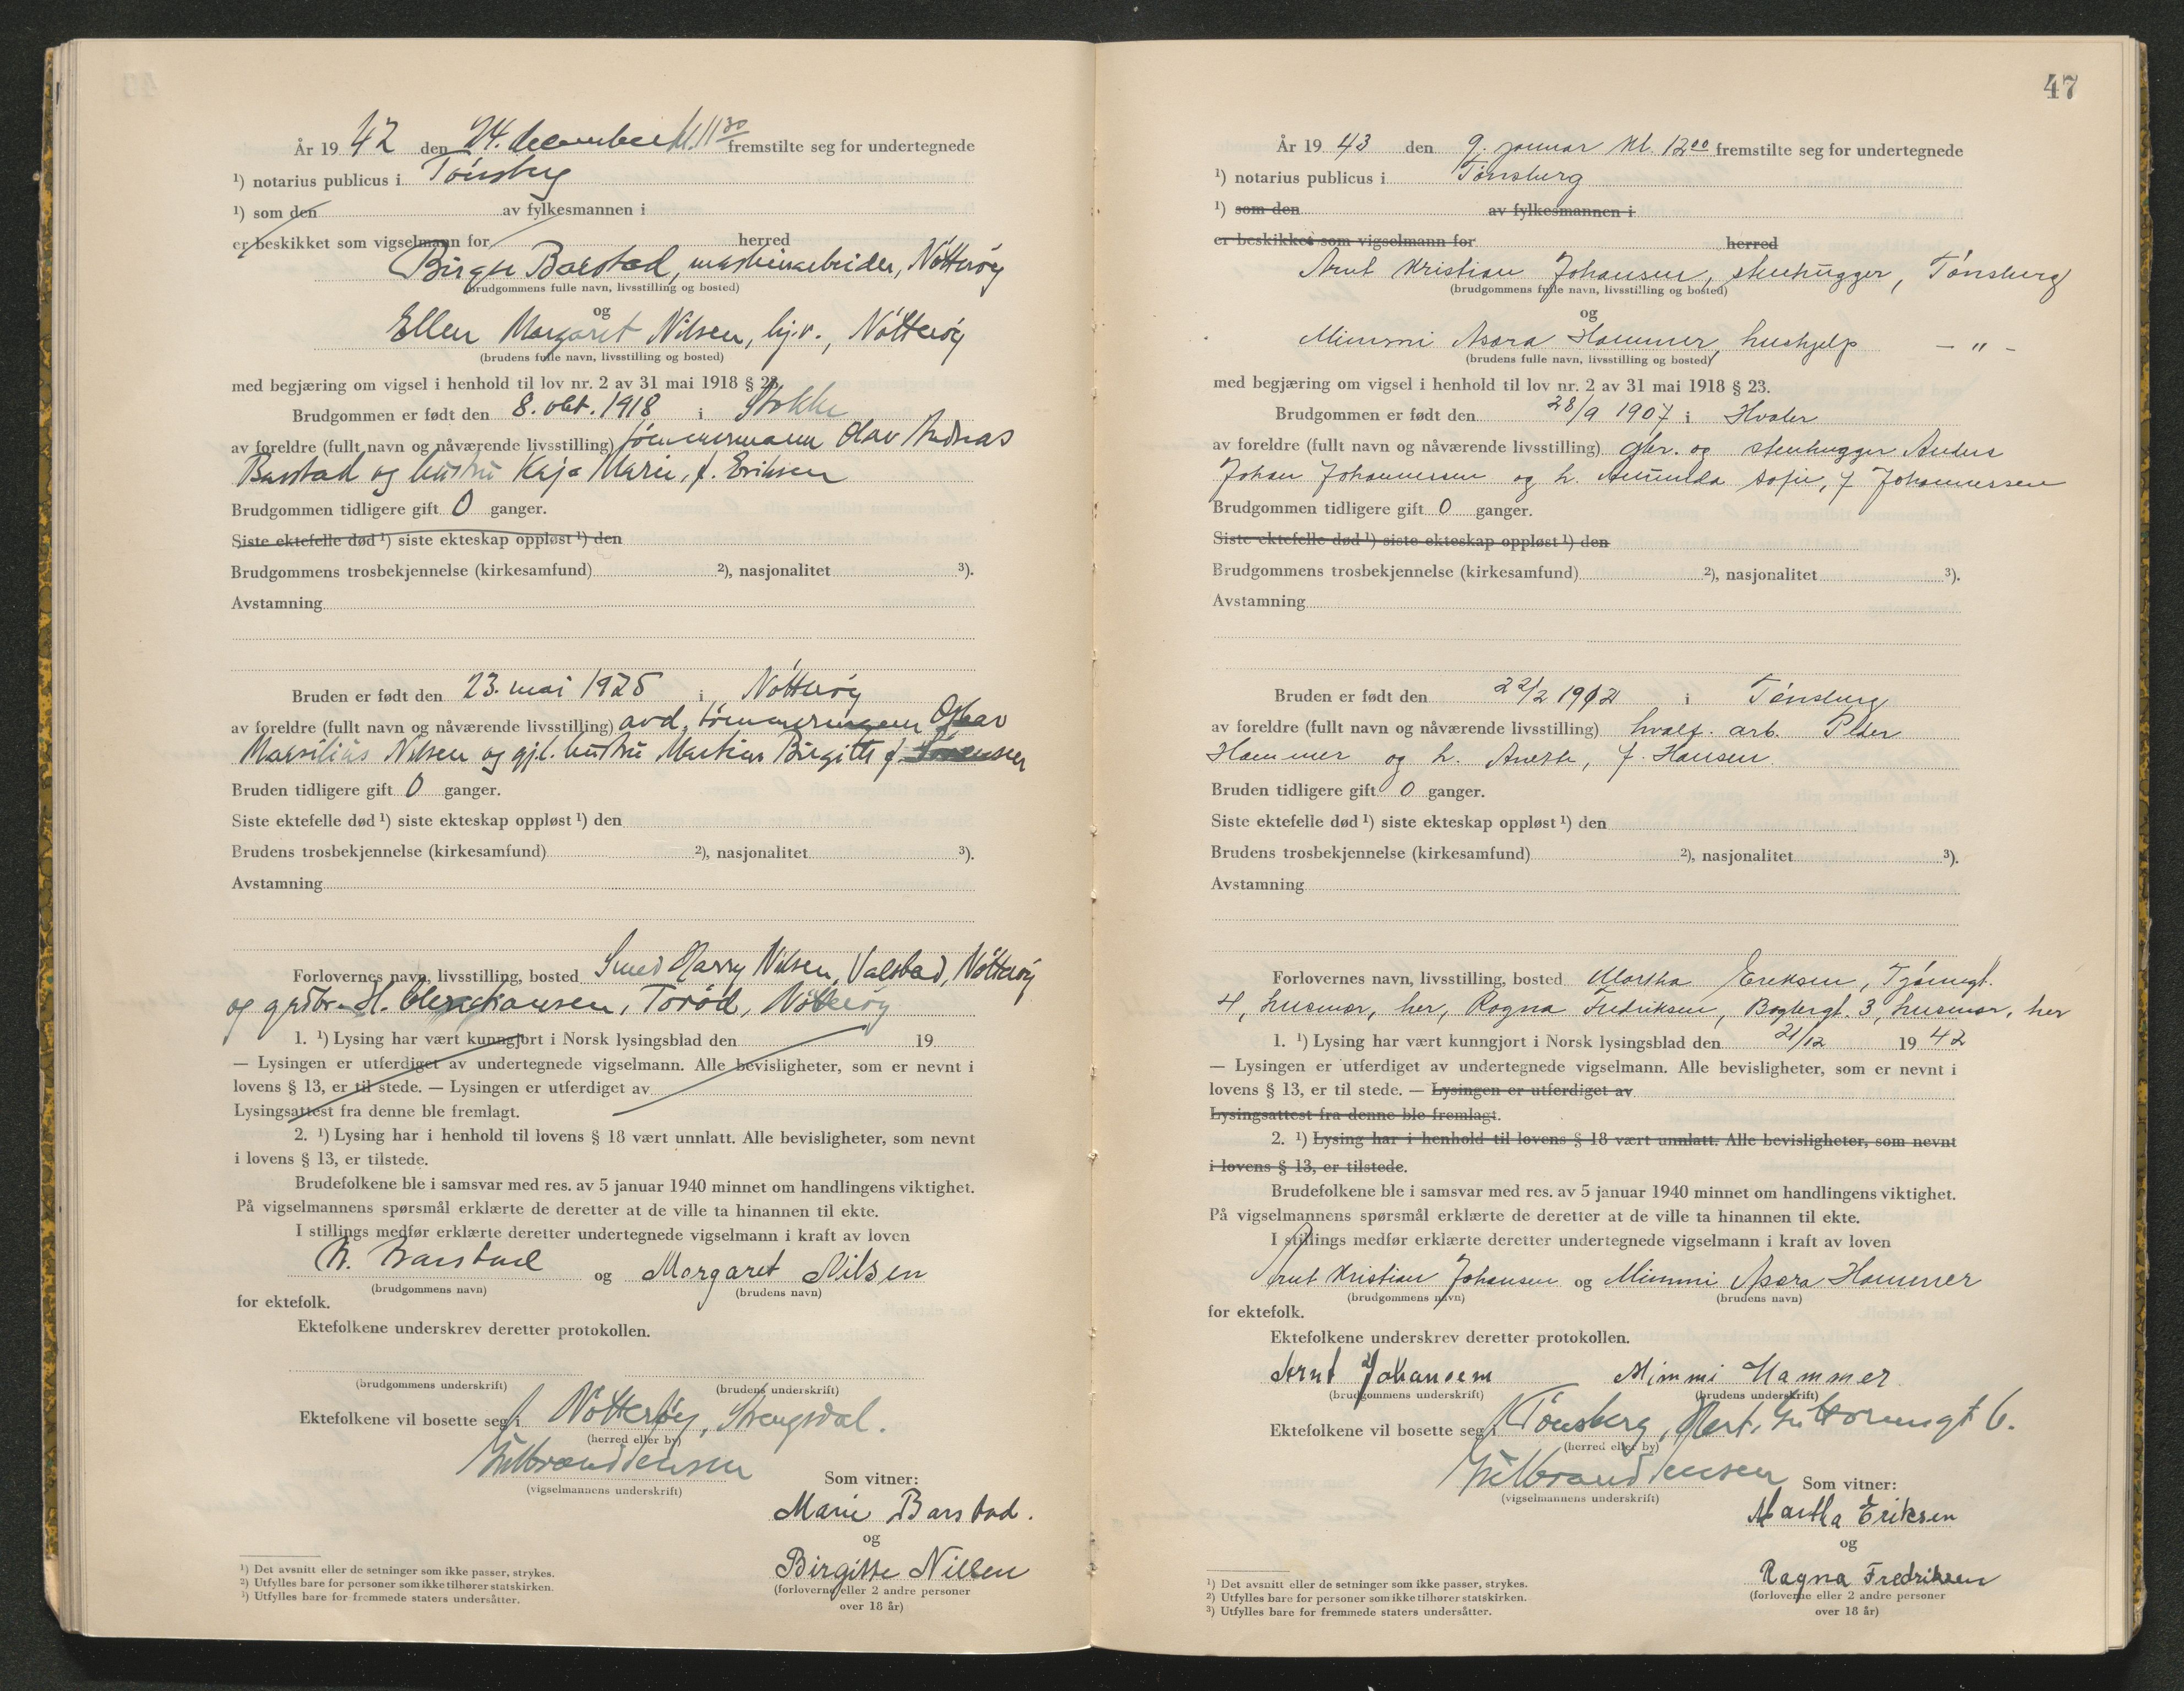 År 19 42 den 24. december kl. 11 30 fremstilte seg for undertegnede
¹) notarius publicus i Tønsberg
¹) som den av fylkesmannen i
er beskikket som vigselmann for herred
Birger Barstad, maskinarbeider, Nøtterøy
(brudgommens fulle navn, livsstilling og bosted)
og
Ellen Margaret Nilsen, hj.v., Nøtterøy
(brudens fulle navn, livsstilling og bosted)
med begjæring om vigsel i henhold til lov nr. 2 av 31 mai 1918 § 23.
Brudgommen er født den 8. okt. 1918 i Stokke
av foreldre (fullt navn og nåværende livsstilling) tømmermann Olav Andreas
Barstad og hustru Kaja Marie, f. Eriksen
Brudgommen tidligere gift 0 ganger.
Siste ektefelle død ¹) siste ekteskap oppløst ¹) den
Brudgommens trosbekjennelse (kirkesamfund) ²), nasjonalitet ³).
Avstamning
Bruden er født den 23. mai 1925 i Nøtterøy
av foreldre (fullt navn og nåværende livsstilling) avd. tømmermann
Marsilius Nilsen og gjl. hustru Birgitte f. Sørensen
Bruden tidligere gift 0 ganger.
Siste ektefelle død ¹) siste ekteskap oppløst ¹) den
Brudens trosbekjennelse (kirkesamfund) ²), nasjonalitet ³).
Avstamning
Forlovernes navn, livsstilling, bosted Smed Harry Nilsen, Valstad, Nøtterøy
og H. Torød, Nøtterøy
1. ¹) Lysing har vært kunngjort i Norsk lysingsblad den 19
— Lysingen er utferdiget av undertegnede vigselmann. Alle bevisligheter, som er nevnt i
lovens § 13, er til stede. — Lysingen er utferdiget av
Lysingsattest fra denne ble fremlagt.
2. ¹) Lysing har i henhold til lovens § 18 vært unnlatt. Alle bevisligheter, som nevnt
i lovens § 13, er tilstede.
Brudefolkene ble i samsvar med res. av 5 januar 1940 minnet om handlingens viktighet.
På vigselmannens spørsmål erklærte de deretter at de ville ta hinannen til ekte.
I stillings medfør erklærte deretter undertegnede vigselmann i kraft av loven
B. Barstad og Margaret Nilsen
(brudgommens navn) (brudens navn)
for ektefolk.
Ektefolkene underskrev deretter protokollen.
(brudgommens underskrift) (brudens underskrift)
Ektefolkene vil bosette seg i Nøtterøy, Strengsdal.
(herred eller by)
(vigselmannens underskrift)
Som vitner:
Marie Barstad.
og
Birgitte Nilsen
(forloverne eller 2 andre personer
over 18 år)
¹) Det avsnitt eller de setninger som ikke passer, strykes.
²) Utfylles bare for personer som ikke tilhører statskirken.
³) Utfylles bare for fremmede staters undersåtter.
47
År 19 43 den 9. januar kl. 12 00 fremstilte seg for undertegnede
¹) notarius publicus i Tønsberg
¹) som den av fylkesmannen i
er beskikket som vigselmann for herred
Arnt Kristian Johansen, stenhugger, Tønsberg
(brudgommens fulle navn, livsstilling og bosted)
og
Mimmi Asora Hammer, hushjelp — " —
(brudens fulle navn, livsstilling og bosted)
med begjæring om vigsel i henhold til lov nr. 2 av 31 mai 1918 § 23.
Brudgommen er født den 28/9 1907 i Hvaler
av foreldre (fullt navn og nåværende livsstilling) gbr. og stenhugger Anders
Johan Johannessen og h. Sofie, f. Johannessen
Brudgommen tidligere gift 0 ganger.
Siste ektefelle død ¹) siste ekteskap oppløst ¹) den
Brudgommens trosbekjennelse (kirkesamfund) ²), nasjonalitet ³).
Avstamning
Bruden er født den 22/2 1912 i Tønsberg
av foreldre (fullt navn og nåværende livsstilling) hvalf. arb. Peder
Hammer og h. Anette, f. Hansen.
Bruden tidligere gift 0 ganger.
Siste ektefelle død ¹) siste ekteskap oppløst ¹) den
Brudens trosbekjennelse (kirkesamfund) ²), nasjonalitet ³).
Avstamning
Forlovernes navn, livsstilling, bosted Martha Eriksen, Tjømegt.
4, husmor, her, Ragna Fredriksen, Baglergt. 3, husmor, her
1. ¹) Lysing har vært kunngjort i Norsk lysingsblad den 21/12 19 42
— Lysingen er utferdiget av undertegnede vigselmann. Alle bevisligheter, som er nevnt i
lovens § 13, er til stede. — Lysingen er utferdiget av
Lysingsattest fra denne ble fremlagt.
2. ¹) Lysing har i henhold til lovens § 18 vært unnlatt. Alle bevisligheter, som nevnt
i lovens § 13, er tilstede.
Brudefolkene ble i samsvar med res. av 5 januar 1940 minnet om handlingens viktighet.
På vigselmannens spørsmål erklærte de deretter at de ville ta hinannen til ekte.
I stillings medfør erklærte deretter undertegnede vigselmann i kraft av loven
Arnt Kristian Johansen og Mimmi Asora Hammer
(brudgommens navn) (brudens navn)
for ektefolk.
Ektefolkene underskrev deretter protokollen.
Arnt Johansen Mimmi Hammer
(brudgommens underskrift) (brudens underskrift)
Ektefolkene vil bosette seg i Tønsberg, 6.
(herred eller by)
(vigselmannens underskrift)
Som vitner:
Martha Eriksen
og
Ragna Fredriksen
(forloverne eller 2 andre personer
over 18 år)
¹) Det avsnitt eller de setninger som ikke passer, strykes.
²) Utfylles bare for personer som ikke tilhører statskirken.
³) Utfylles bare for fremmede staters undersåtter.